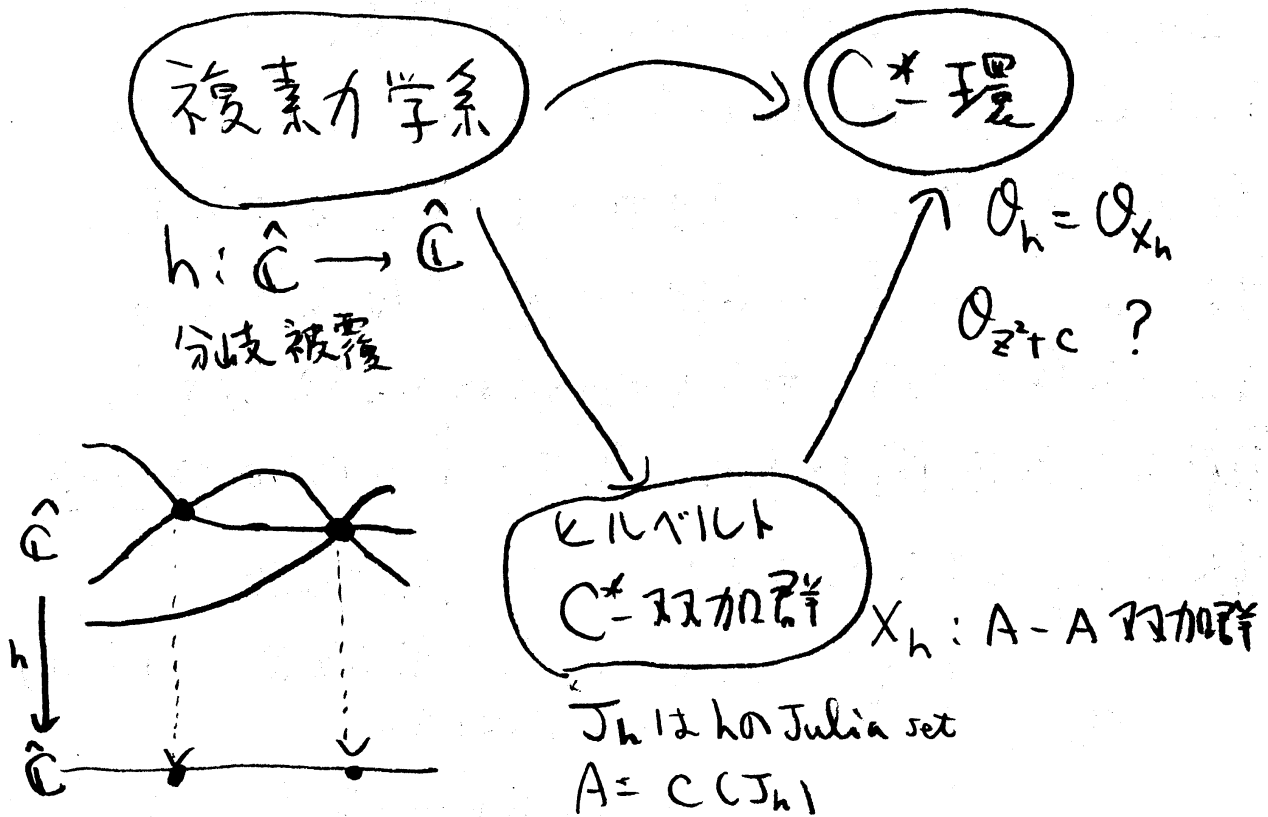 複素力学系
C*-環
h : Ĉ → Ĉ
分岐被覆
O_h = O_{X_h}
O_{z²+c} ?
Ĉ
h
Ĉ
ヒルベルト
C*-双加群
X_h : A-A 双加群
J_hはhのJulia set
A = C(J_h)